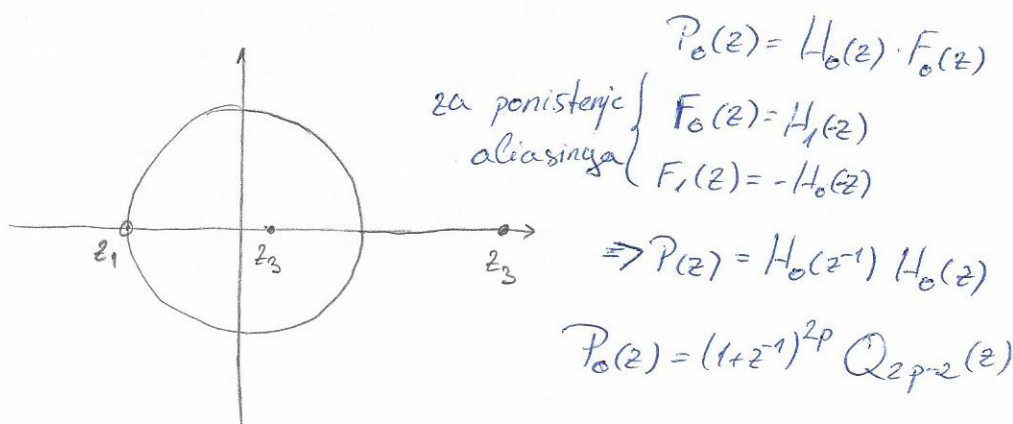 P₀(z) = H₀(z) · F₀(z)
za poništenje
aliasinga
F₀(z) = H₁(-z)
F₁(z) = -H₀(-z)
z₁ z₃ z₃
⇒ P(z) = H₀(z⁻¹) H₀(z)
P₀(z) = (1+z⁻¹)²ᵖ Q₂ₚ₋₂(z)